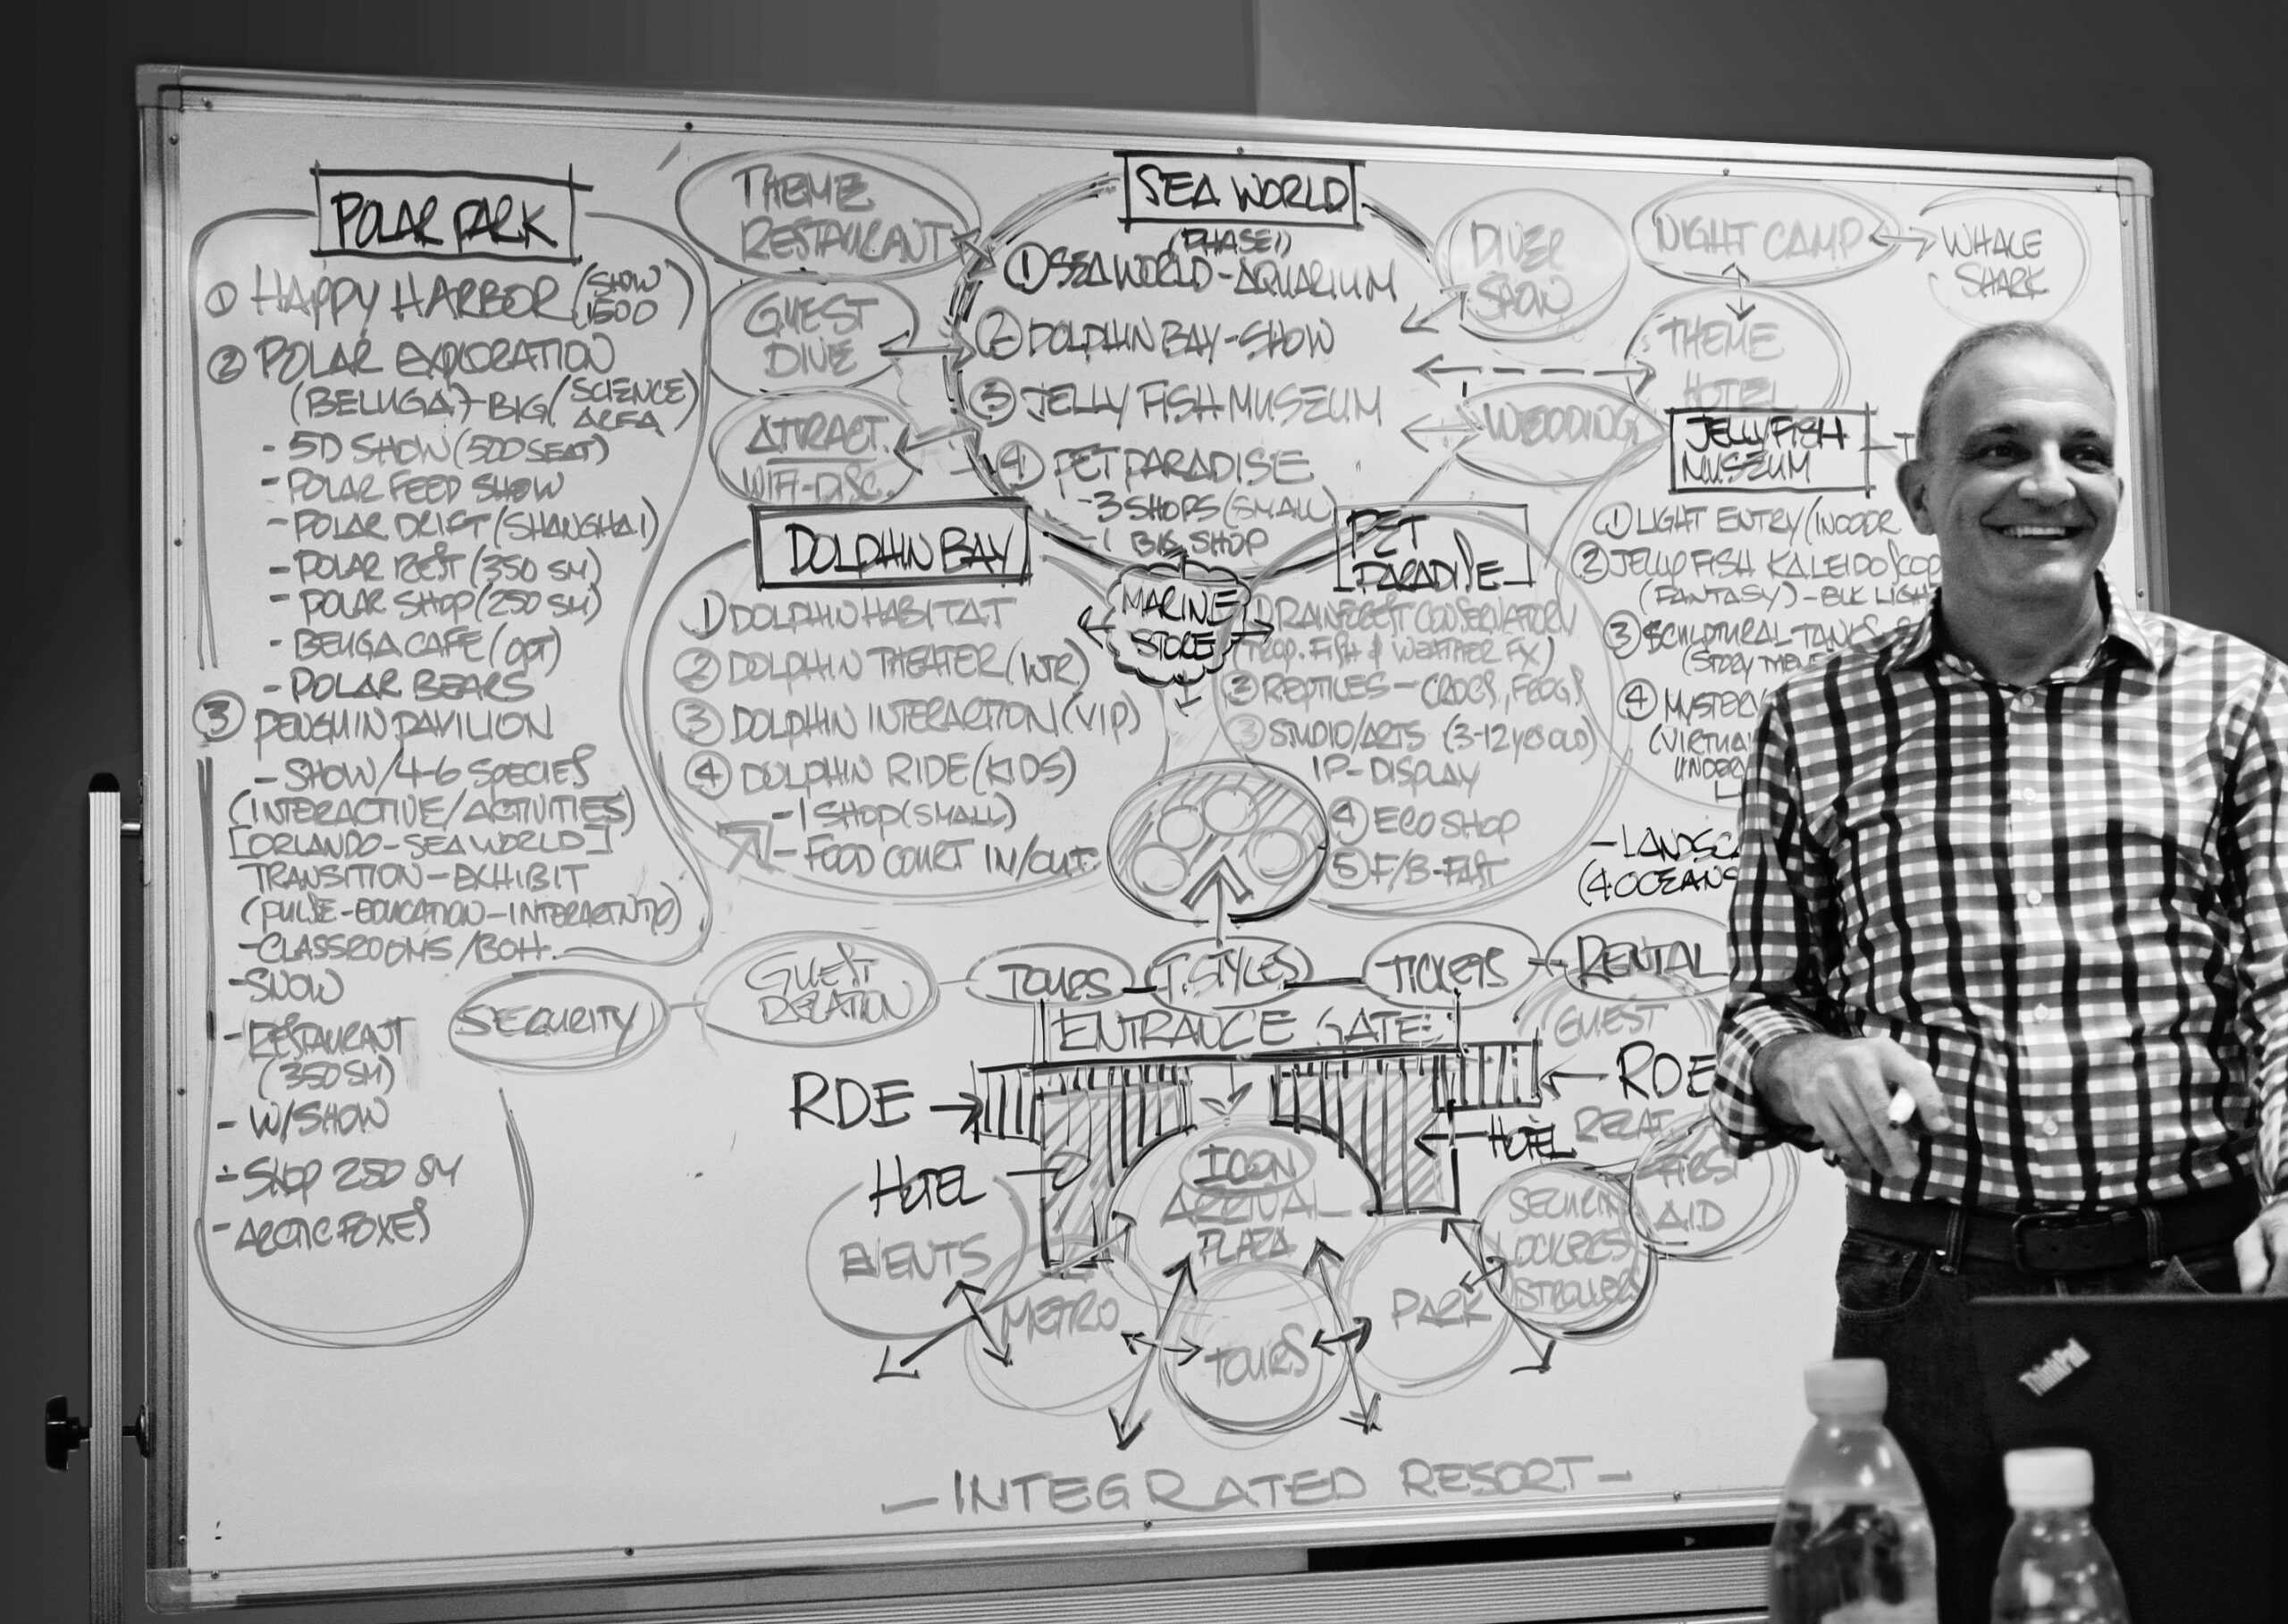 POLAR PARK
① HAPPY HARBOR (SHOW 1500)
② POLAR EXPLORATION
(BELUGA)-BIG (SCIENCE AREA)
- 5D SHOW (500 SEAT)
- POLAR FEED SHOW
- POLAR DRIFT (SHANGHAI)
- POLAR REST (350 SM)
- POLAR SHOP (250 SM)
- BELUGA CAFE (OPT)
- POLAR BEARS
③ PENGUIN PAVILION
- SHOW/4-6 SPECIES
(INTERACTIVE/ACTIVITIES)
[ORLANDO-SEA WORLD]
TRANSITION-EXHIBIT
(PULSE-EDUCATION-
- CLASSROOMS/BOH.
- SNOW
- RESTAURANT
(350 SM)
- W/SHOW
- SHOP 250 SM
- ARCTIC FOXES
THEME
RESTAURANT
GUEST
DIVE
ATTRACT.
WIFI-DISC.
SEA WORLD
(PHASE 1)
① SEA WORLD-AQUARIUM
② DOLPHIN BAY-SHOW
③ JELLY FISH MUSEUM
④ PET PARADISE
-3 SHOPS (SMALL)
-1 BIG SHOP
DIVER
SHOW
NIGHT CAMP
WHALE
SHARK
THEME
HOTEL
WEDDING
DOLPHIN BAY
1) DOLPHIN HABITAT
② DOLPHIN THEATER (WTR)
③ DOLPHIN INTERACTION (VIP)
④ DOLPHIN RIDE (KIDS)
-1 SHOP (SMALL)
- FOOD COURT IN/OUT.
MARINE
STORE
PET
PARADISE
1) RAINFOREST CONSERVATORY
(TROP. FISH & WEATHER FX)
② REPTILES - CROCS, FROGS
③ STUDIO/ARTS (3-12 YRS OLD)
IP-DISPLAY
④ ECO SHOP
⑤ F/B-FAST
JELLYFISH
MUSEUM
① LIGHT ENTRY (INDOOR
② JELLY FISH KALEIDOSCOP
(FANTASY)-BLK LIGHT
③ SCULPTURAL TANKS
(STORY
④ MYSTERY
(VIRTUA
UNDER
- LANDSCA
(4 OCEANS
SECURITY
GUEST
RELATION
TOURS
T. STYLES
TICKETS
RENTAL
ENTRANCE GATE
GUEST
RELAT.
RDE
RDE
HOTEL
HOTEL
ICON
ARRIVAL
PLAZA
EVENTS
METRO
TOURS
PARK
SECURITY
LOCKERS
STROLLERS
FIRST
AID
- INTEGRATED RESORT -
ThinkPad